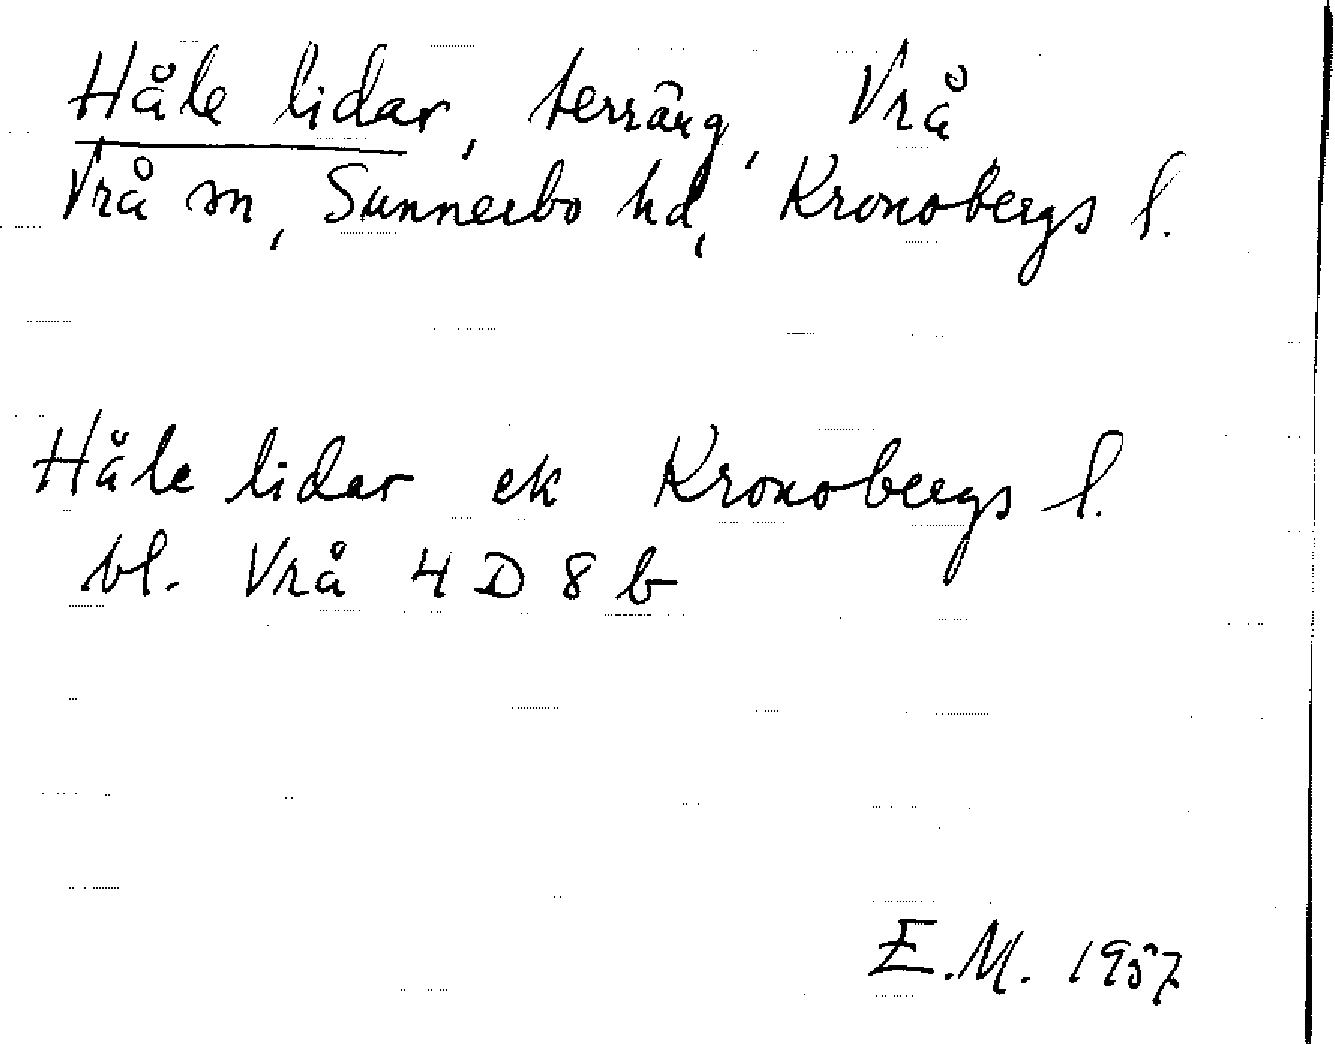 Håle lidar, terräng, Vrå
Vrå sn, Sunnerbo hd, Kronobergs l.
Håle lidar ek Kronobergs l.
bl. Vrå 4 D 8 b
E.M. 1957